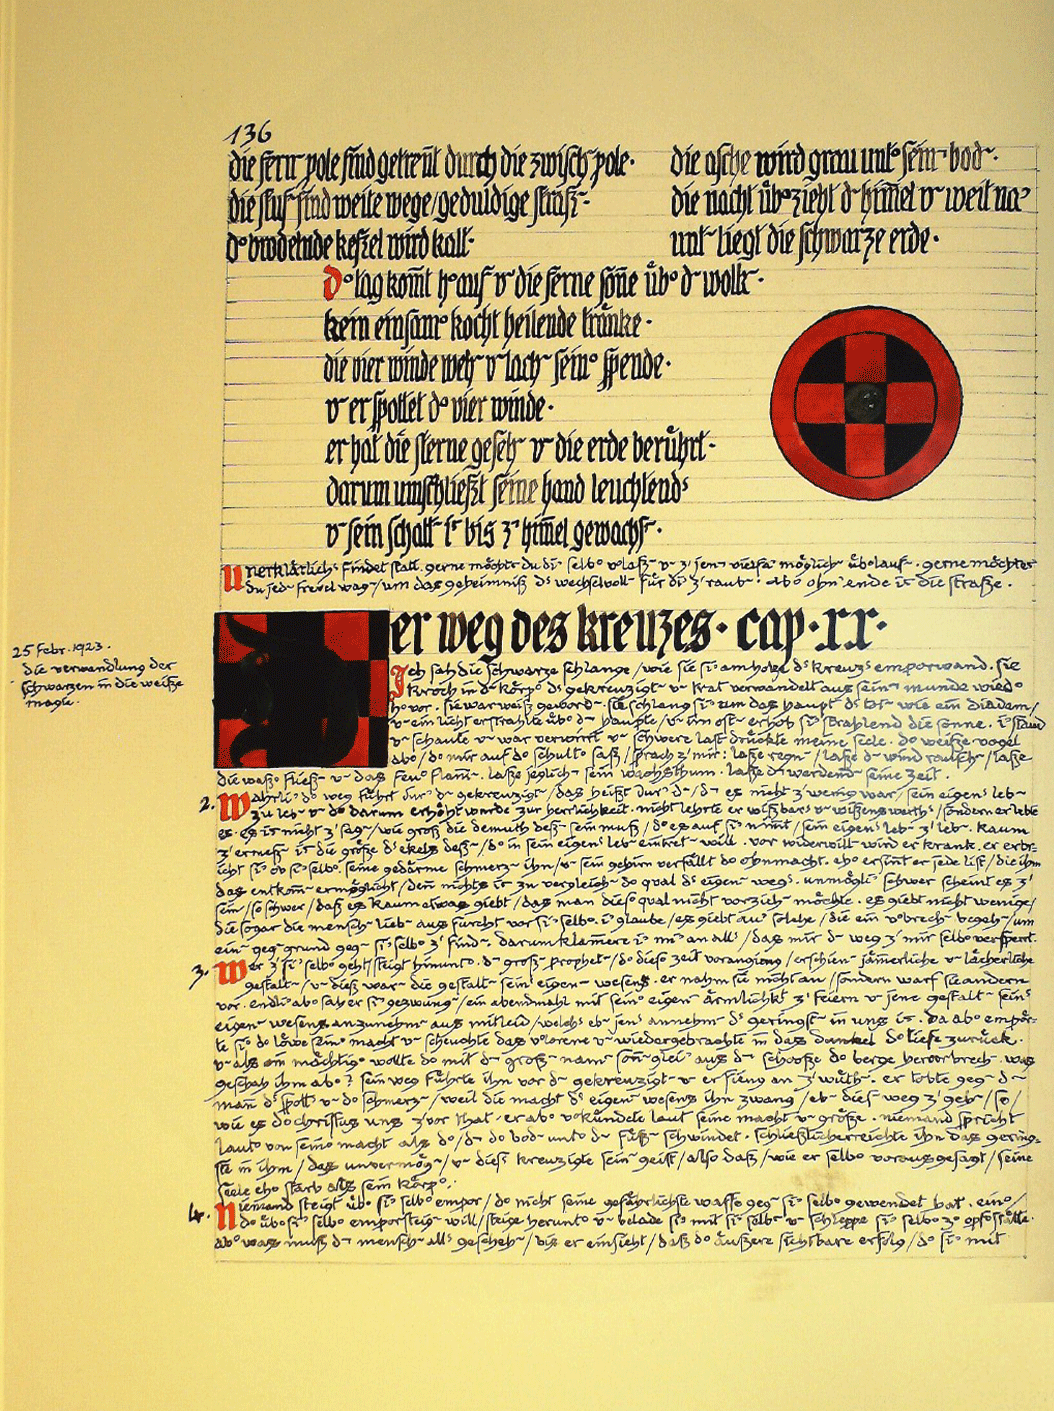 136
die fern~ pole sind getren̄t durch die zwisch~ pole·
die flüss~ sind weite wege/geduldige straß~·
d° brodelnde kessel wird kalt·
die asche wird grau unt° sein~ bod~·
die nacht üb° zieht d~ him̄el v~ weit
unt~ liegt die schwarze erde·
d° tag kom̄t h°auf v~ die ferne son̄e üb° d~ wolk~·
kein einsam° kocht heilende tränke·
die vier winde weh~ v~ lach~ sein° spende·
v~ er spottet d° vier winde·
er hat die sterne geseh~ v~ die erde berührt·
darum umschließt seine hand leuchtend°
v~ sein schatt~ is~ bis z' him̄el gewachs~·
Unerklärlich° findet statt. gerne möchtest du di~ selb° v°lass~ v~ z' jen~ vielfa~ möglich~ üb°lauf~. gerne möchtest
du jed~ frevel wag~/um das geheimniß d° wechselvoll~ für di~ z' raub~. ab° ohn' ende is~ die straße.
Der weg des kreuzes· cap·xx·
25 Febr. 1923.
die verwandlung der
schwarzen in die weiße
magie.
Ich sah die schwarze schlange/wie sie si~ am holze d° kreuz° emporwand. sie
kroch in d~ körp° d° gekreuzigt~ v~ trat verwandelt aus sein~ munde wied°
h°vor. sie war weiß geword~. sie schlang si~ um das haupt d° tot~ wie ein diadem/
v~ ein licht erstrahlte üb° d~ haupte/v~ im ost~ erhob si~ strahlend die sonne. i~ stand
v~ schaute v~ war verwirrt v~ schwere last drückte meine seele. d° weiße vogel
ab°/d° mir auf d° schult° saß/sprach z' mir: lasse regn~/lasse d~ wind rausch~/lasse
die wass° fließ~ v~ das feu° flam̄~. lasse jeglich~ sein wachsthum. lasse d~ werdend~ seine zeit.
2. Wahrli~ d° weg führt dur~ d~ gekreuzigt~/das heißt dur~ d~/d~ es nicht z' wenig war/sein eigen° leb~
zu leb~ v~ d° darum erhöht wurde zur herrlichkeit. nicht lehrte er wissbar° v~ wissenswerth°/sondern er lebte
es. es is~ nicht z' sag~/wie groß die demuth dess~ sein muß/d° es auf si~ nim̄t/sein eigen° leb~ z' leb~. kaum
z' ermess~ is~ die größe d° ekels dess~/d° in sein eigen° leb~ eintret~ will. vor widerwill~ wird er krank. er erbr-
icht si~ ob si~ selb°. seine gedärme schmerz~ ihn/v~ sein gehirn verfällt d° ohnmacht. eh° ersin̄t er jede list/die ihm
das entkom̄~ ermöglicht/den̄ nichts is~ zu vergleich~ d° qual d° eigen~ weg°. unmögli~ schwer scheint es z'
sein/so schwer/daß es kaum etwas giebt/das man dies° qual nicht vorzieh~ möchte. es giebt nicht wenige/
die sogar die mensch~ lieb~ aus furcht vor si~ selb°. i~ glaube/es giebt au~ solche/die ein v°brech~ begeh~/um
ein~ geg~grund geg~ si~ selb° z' find~. darum klam̄ere i~ mi~ an all°/das mir d~ weg z' mir selb° versperrt.
3. Wer z' si~ selb° geht/steigt hinunt°. d~ groß~ prophet~/d° dies° zeit voranging/erschien~ jäm̄erliche v~ lächerliche
gestalt~/v~ dieß war~ die gestalt~ sein° eigen~ wesens. er nahm sie nicht an/sondern warf sie andern
vor. endli~ ab° sah er si~ gezwung~/ein abendmahl mit sein° eigen~ ärmlichkt z' feiern v~ jene gestalt~ sein°
eigen~ wesens anzunehm~ aus mitleid/welch° eb~ jen° annehm~ d° geringst~ in uns is~. da ab° empör-
te si~ d° löwe sein° macht v~ scheuchte das v°lorene v~ wiedergebrachte in das dunkel d° tiefe zurück.
v~ als ein mächtig° wollte d° mit d~ groß~ nam~ son̄~glei~ aus d~ schooße d° berge hervorbrech~. was
geschah ihm ab°? sein weg führte ihn vor d~ gekreuzigt~ v~ er fieng an z' wüth~. er tobte geg~ d~
man̄ d° spott° v~ d° schmerz~/weil die macht d° eigen~ wesens ihn zwang/eb~ dies~ weg z' geh~/so/
wie es d° christus uns z'vor that. er ab° v°kündete laut seine macht v~ größe. niemand spricht
laut° von sein° macht als d°/d~ d° bod~ unt° d~ füß~ schwindet. schließlich erreichte ihn das gering-
ste in ihm/das unvermög~/v~ dies° kreuzigte sein~ geist/also daß/wie er selb° vorausgesagt/seine
seele eh° starb als sein körp°.
4. Niemand steigt üb° si~ selb° empor/d° nicht seine gefährlichste waffe geg~ si~ selb° gewendet hat. ein°/
d° üb° si~ selb° emporsteig~ will/steige herunt° v~ belade si~ mit si~ selb° v~ schleppe si~ selb° z° opf°stätte.
ab° was muß d~ mensch~ all° gescheh~/bis er einsieht/daß d° äußere sichtbare erfolg/d° si~ mit